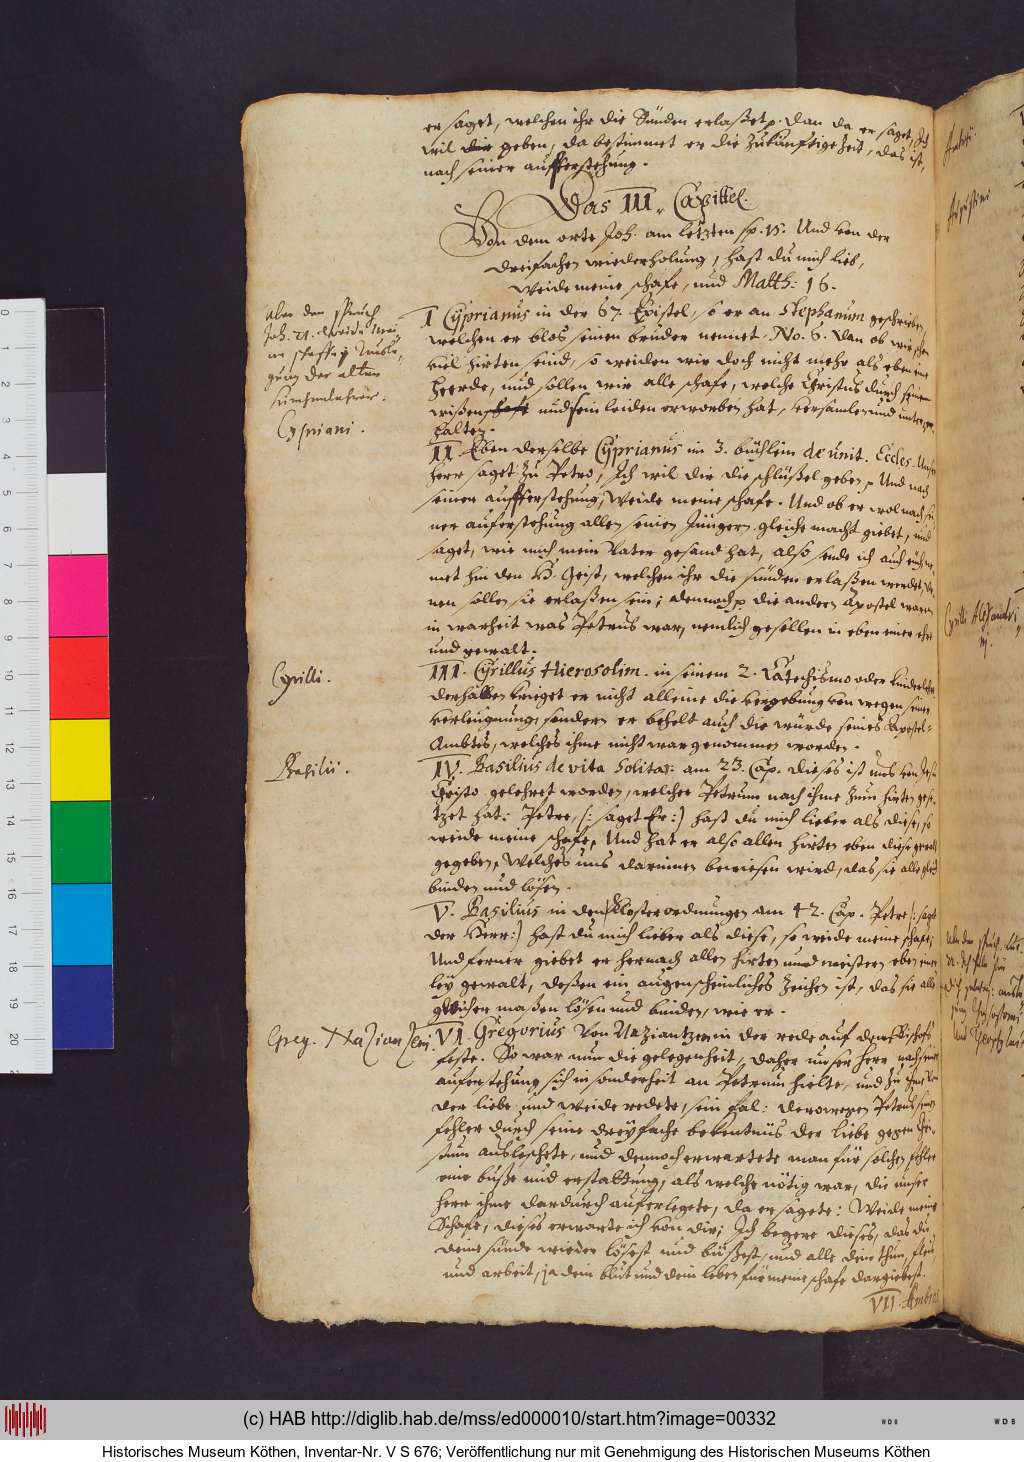 er saget, welchen ihr die Sünden erlaßet p. dan da er saget, Ich
wil dir geben, da bestimmet er die Zukünftige Zeit, das ist,
nach seiner aufferstehung.
Das III. Capittel.
Von dem orte Joh. am letzten sp. 15. Und von der
dreifachen wiederholung, hast du mich lieb,
weide meine schafe, und Matth: 16.
Über den spruch
Joh. 21. weide mei
ne schaffe p Ausle,
gung der alten
kirchenlehrer.
Cypriani.
I Cyprianus in der 67. Epistel, so er an Stephanum geschrieben,
welchen er blos seinen bruder nennet. No. 6. dan ob wir schon
viel hirten seind, so weiden wir doch nicht mehr als eben eine
Heerde, und sollen wir alle schafe, welche Christus durch seinen
wißen und sein leiden erworben hat, versamlen und
halten.
II. Eben derselbe Cyprianus im 3. büchlein de unit. Eccles. Unser
herr saget zu Petro, Ich wil dir die schlüßel geben p Und nach
seiner aufferstehung, Weide meine schafe. Und ob er wol nach sei
ner auferstehung allen seinen Jüngern gleiche macht giebet, und
saget, wie mich mein Vater gesand hat, also sende ich auch euch ne
met hin den H. Geist, welchen ihr die sünden erlaßen werdet, de
nen sollen sie erlaßen sein; dennoch p die andern Apostel waren
in warheit was Petrus war, nemlich gesellen in eben einer ehre
und gewalt.
Cyrilli.
III. Cyrillus Hierosolim. in seinem 2. Catechismo oder kinderlehr
derhalben krieget er nicht alleine die vergebung von wegen seiner
verleugnung, sondern er behelt auch die würde seines Apostel=
Ambtes, welches ihme nicht war genommen worden.
Basilii.
IV. Basilius de vita Solitar: am 23. Cap. dieses ist uns von Jesu
Christo gelehret worden, welcher Petrum nach ihme zum hirten gese
tzet hat: Petre, (: saget Er :) hast du mich lieber als diese, so
weide meine schafe, Und hat er also allen hirten eben diese gewalt
gegeben, Welches uns darinnen bewiesen wird, das sie alle gleich
binden und lösen.
V. Basilius in den Klosterordnungen am 42. Cap. Petre (: saget
der Herr :) hast du mich lieber als diese, so weide meine schafe;
Und ferner giebet er hernach allen hirten und meistern eben einer
ley gewalt, deßen ein augenscheinliches Zeichen ist, das sie alle
gleicher maßen lösen und binden, wie er.
Greg. Nazianzeni.
VI. Gregorius von Naziantzen in der rede auf den Bischofs
feste. So war nun die gelegenheit, daher unser herr nach seiner
auferstehung sich in sonderheit an Petrum hielte, und zu ihme von
der liebe und weide redete, sein fal: derowegen Petrus seinen
fehler durch seine dreyfache bekentnüs der liebe gegen Chri
stum ausleschete, und dennoch erwartete man für solchen fehler
eine buße und erstattung, als welche nötig war, die unser
herr ihme dardurch auferlegete, da er sagete: Weide meine
Schafe, dieses erwarte ich von dir; Ich begere dieses, das du
deine sünde wieder lösest und büßest, und alle deine thun, fleis
und arbeit, ja dein blut und dein leben für meine schafe dargiebest.
VII. Ambros
Augustini
Cyrilli Alexandri
ni.
(c) HAB http://diglib.hab.de/mss/ed000010/start.htm?image=00332
WDB
WDB
Historisches Museum Köthen, Inventar-Nr. V S 676; Veröffentlichung nur mit Genehmigung des Historischen Museums Köthen
0
1
2
3
4
5
6
7
8
9
10
11
12
13
14
15
16
17
18
19
20